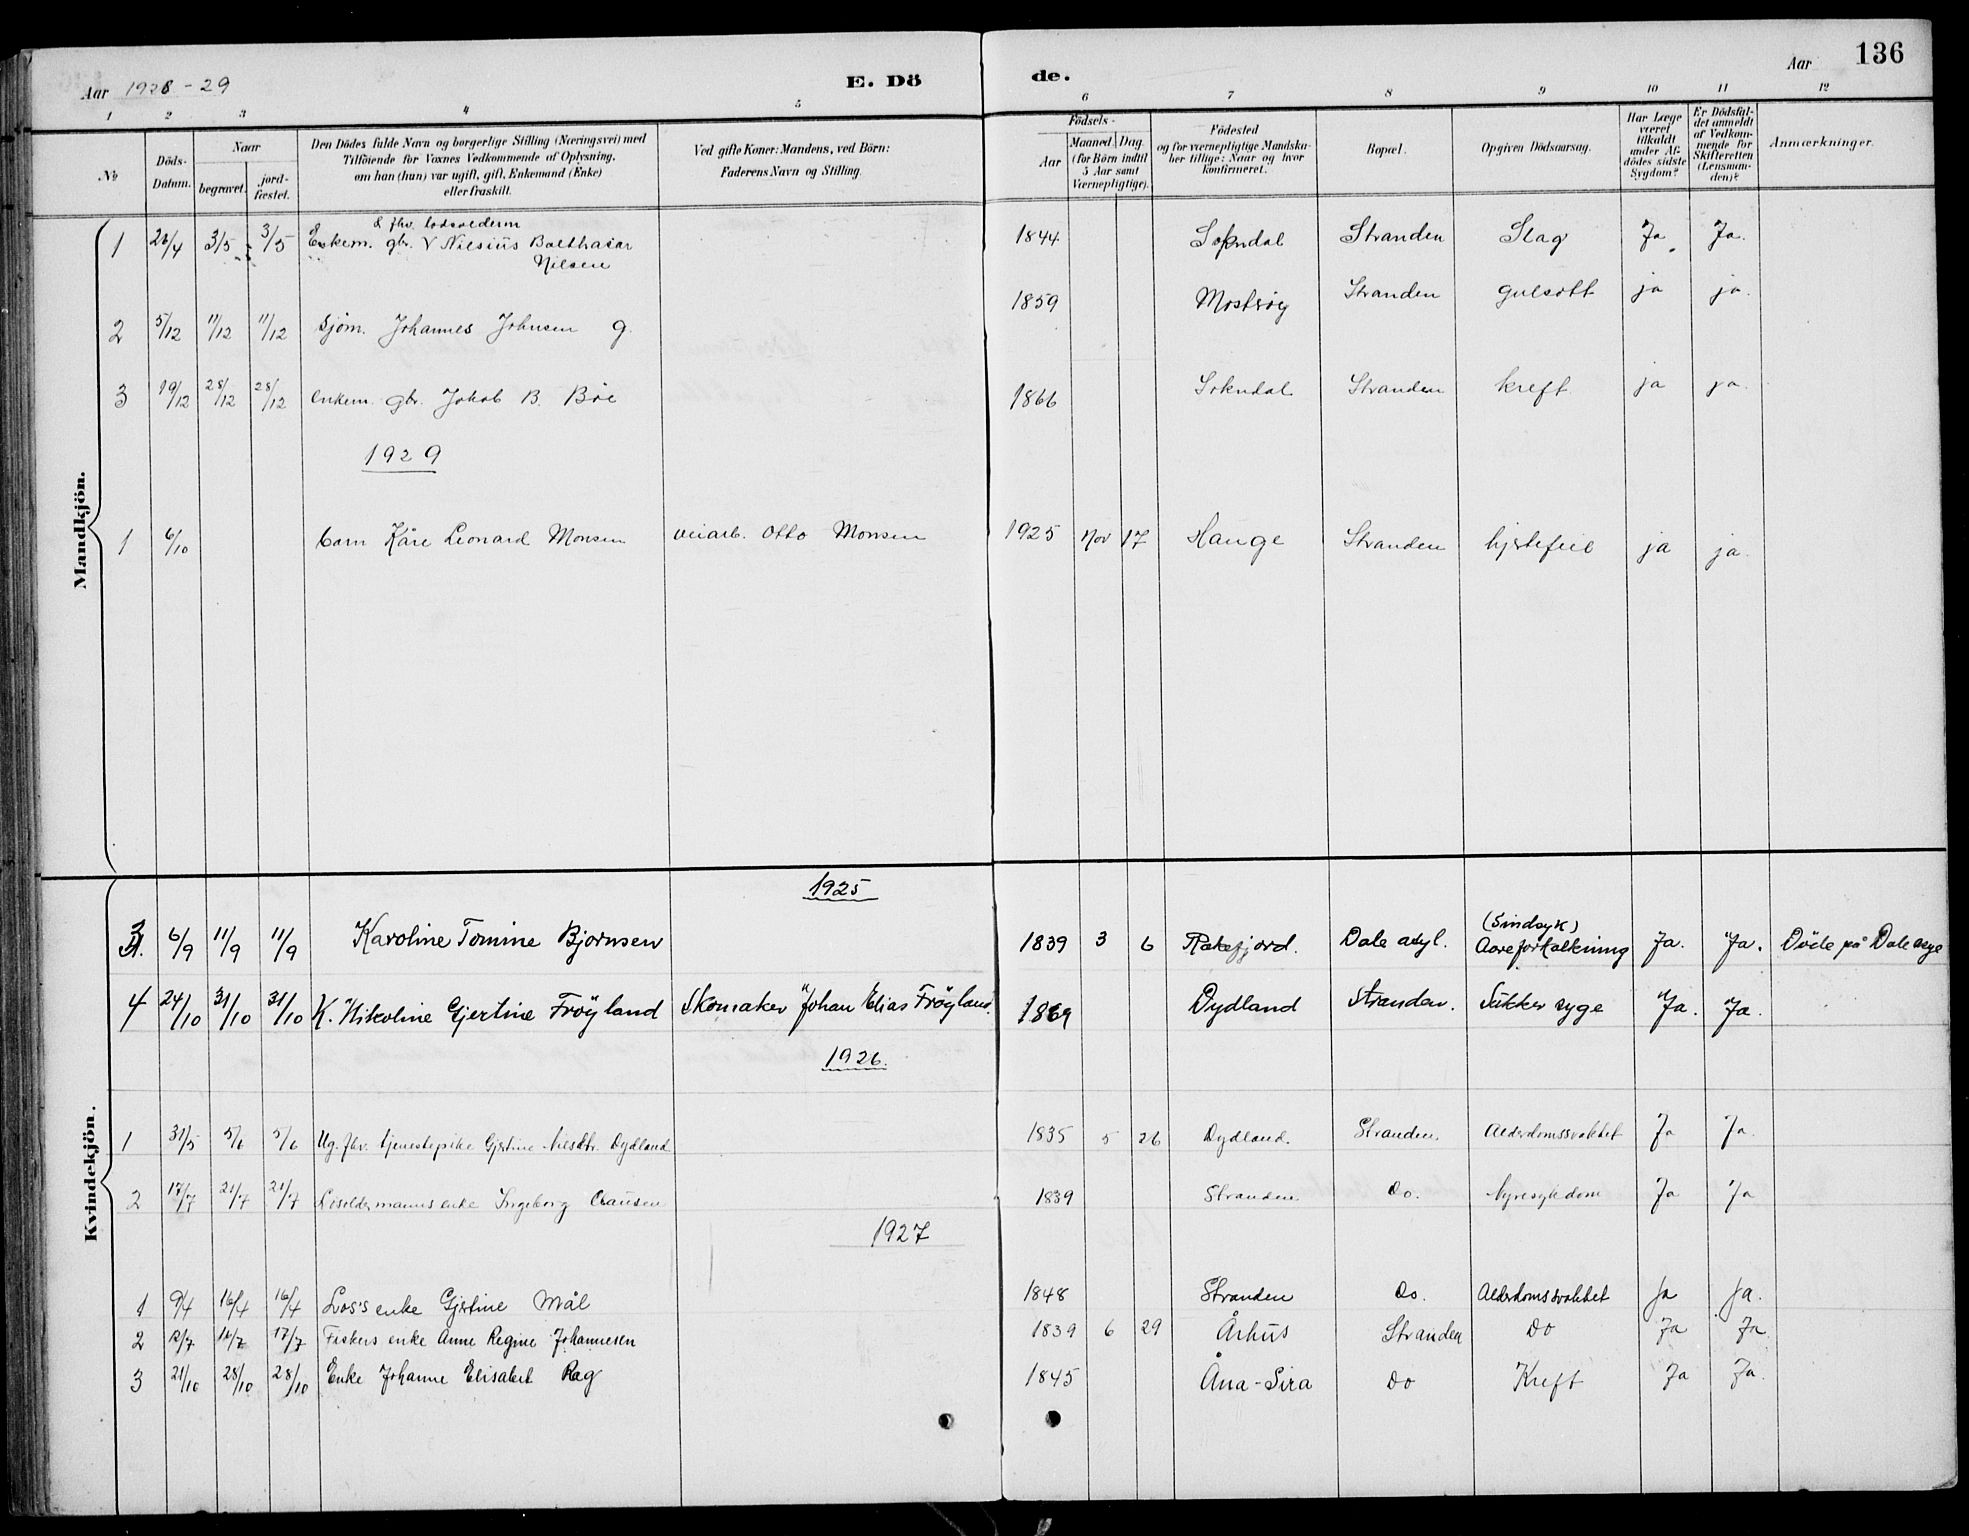 Aar 1928-29 E. Döde. Aar 136
1 2 3 4 5 6 7 8 9 10 11 12
№
Döds-Datum.
Naar
begravet.
jord-fæstet.
Den Dödes fulde Navn og borgerlige Stilling (Næringsvei) med
Tilföiende for Voxnes Vedkommende af Oplysning,
om han (hun) var ugift, gift, Enkemand (Enke)
eller fraskilt.
Ved gifte Koner: Mandens, ved Börn:
Faderens Navn og Stilling.
Födsels-
Aar
Maaned. Dag.
(for Börn indtil
5 Aar samt
Værnepligtige).
Födested
og for værnepligtige Mandska-
ber tillige: Naar og hvor
konfirmeret.
Bopæl.
Opgiven Dödsaarsag.
Har Læge
været
tilkaldt
under Af-
dödes sidste
Sygdom?
Er Dödsfal-
det anmeldt
af Vedkom-
mende for
Skifteretten
(Lensman-
den)?
Anmærkninger.
Mandkjön.
& fhv. lodsolderm
1 26/4 3/5 3/5 Enkem. gbr. V Nilsius Balthasar 1844 Sokndal Stranden Slag Ja Ja.
Nilsen
2 5/12 11/12 11/12 Sjøm. Johannes Johnsen g. 1859 Mosterøy Stranden gulsott ja ja.
3 19/12 28/12 28/12 enkem. gbr. Jakob B. Böe 1866 Sokndal Stranden kreft ja ja.
1929
1 6/10 barn Kåre Leonard Monsen veiarb. Otto Monsen 1925 Nov 17 Hauge Stranden hjertefeil ja ja.
Kvindekjön.
1925
3. 6/9 11/9 11/9 Karoline Tomine Bjornsen 1839 3 6 Rakefjord. Dale asyl. (Sindsyk) Aareforkalkning Ja. Ja. Døde på Dale asyl
4 24/10 31/10 31/10 K. Nikoline Gjertine Fröyland Skomaker Johan Elias Fröyland. 1869 Dydland Stranden. Sukkersyge Ja. Ja.
1926.
1 31/5 5/6 5/6 Ug. fhv. tjenestepike Gjertine Nilsdtr. Dydland 1835 5 26 Dydland. Stranden. Alderdomssvakhet Ja Ja.
2 17/7 21/7 21/7 Losoldermanns enke Ingeborg Clausen 1839 Stranden Do. hyresykdom Ja Ja
1927
1 9/4 16/4 16/4 Los's enke Gjertine Mål 1848 Stranden Do. Alderdomssvakhet Ja Ja.
2 12/7 17/7 17/7 Fiskers enke Anne Regine Johannesen 1839 6 29 Århus Stranden Do Ja Ja.
3 21/10 28/10 28/10 Enke Johanne Elisabet Reg 1845 Åna-Sira Do Kreft Ja Ja.